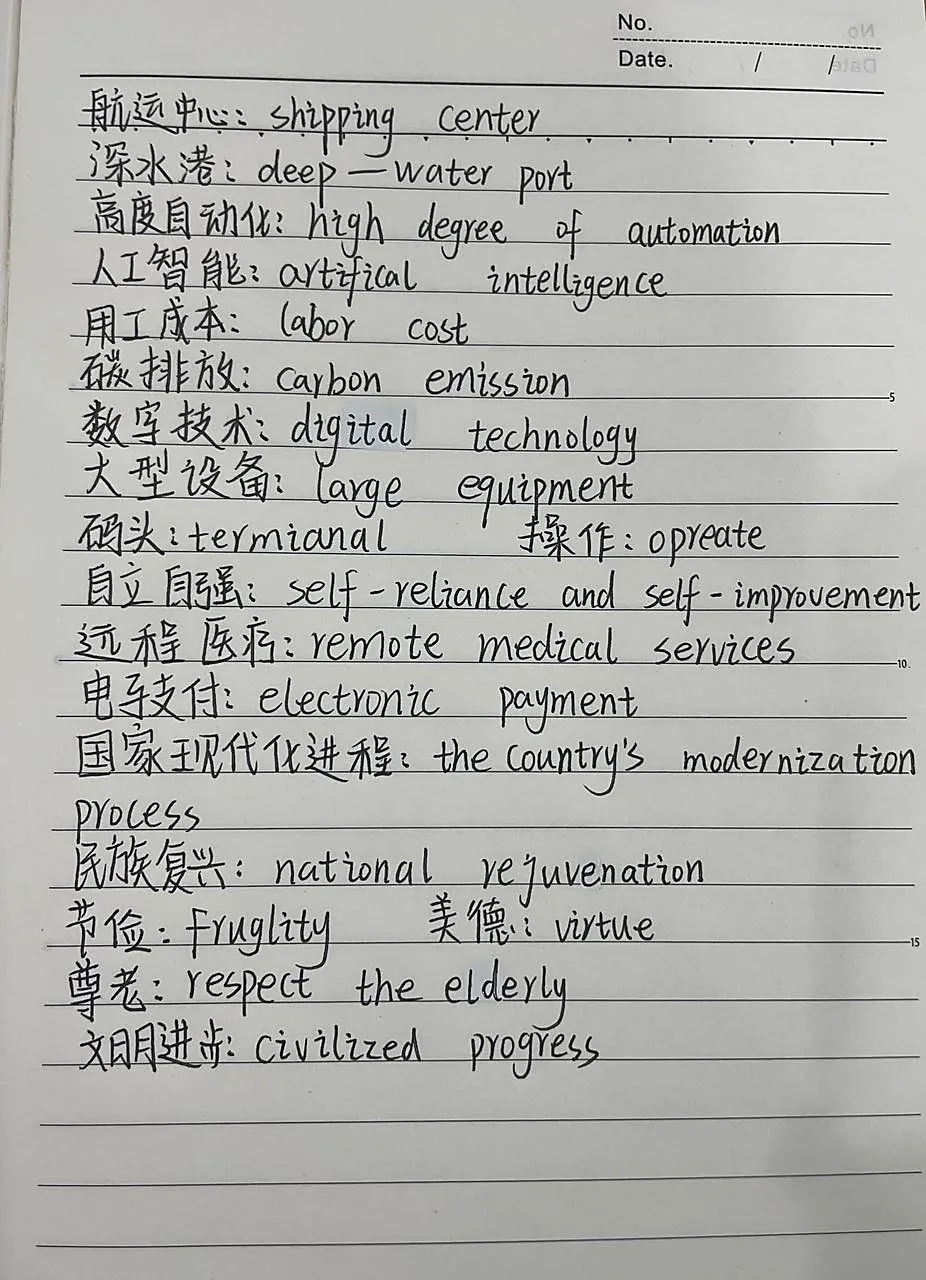 No.
Date. / /
航运中心: shipping center
深水港: deep-water port
高度自动化: high degree of automation
人工智能: artifical intelligence
用工成本: labor cost
碳排放: carbon emission
5
数字技术: digital technology
大型设备: large equipment
码头: termianal 操作: opreate
自立自强: self-reliance and self-improvement
远程医疗: remote medical services
10
电子支付: electronic payment
国家现代化进程: the country's modernization
process
民族复兴: national rejuvenation
节俭: fruglity 美德: virtue
15
尊老: respect the elderly
文明进步: civilized progress